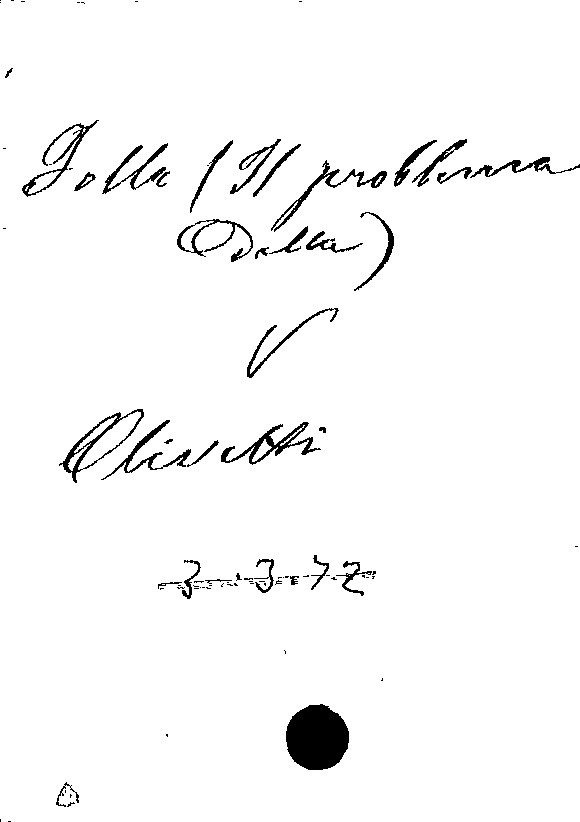 Folla (Il problema
Della)
V
Olivetti
3.3.72